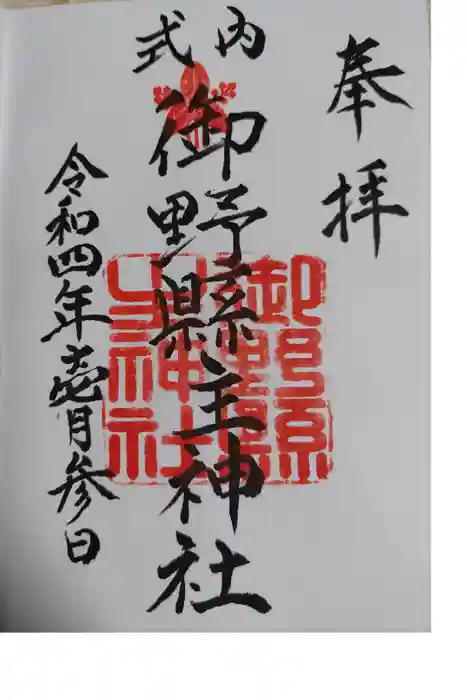 奉拝
式内
御野縣主神社
令和四年壱月参日
御野縣主神社